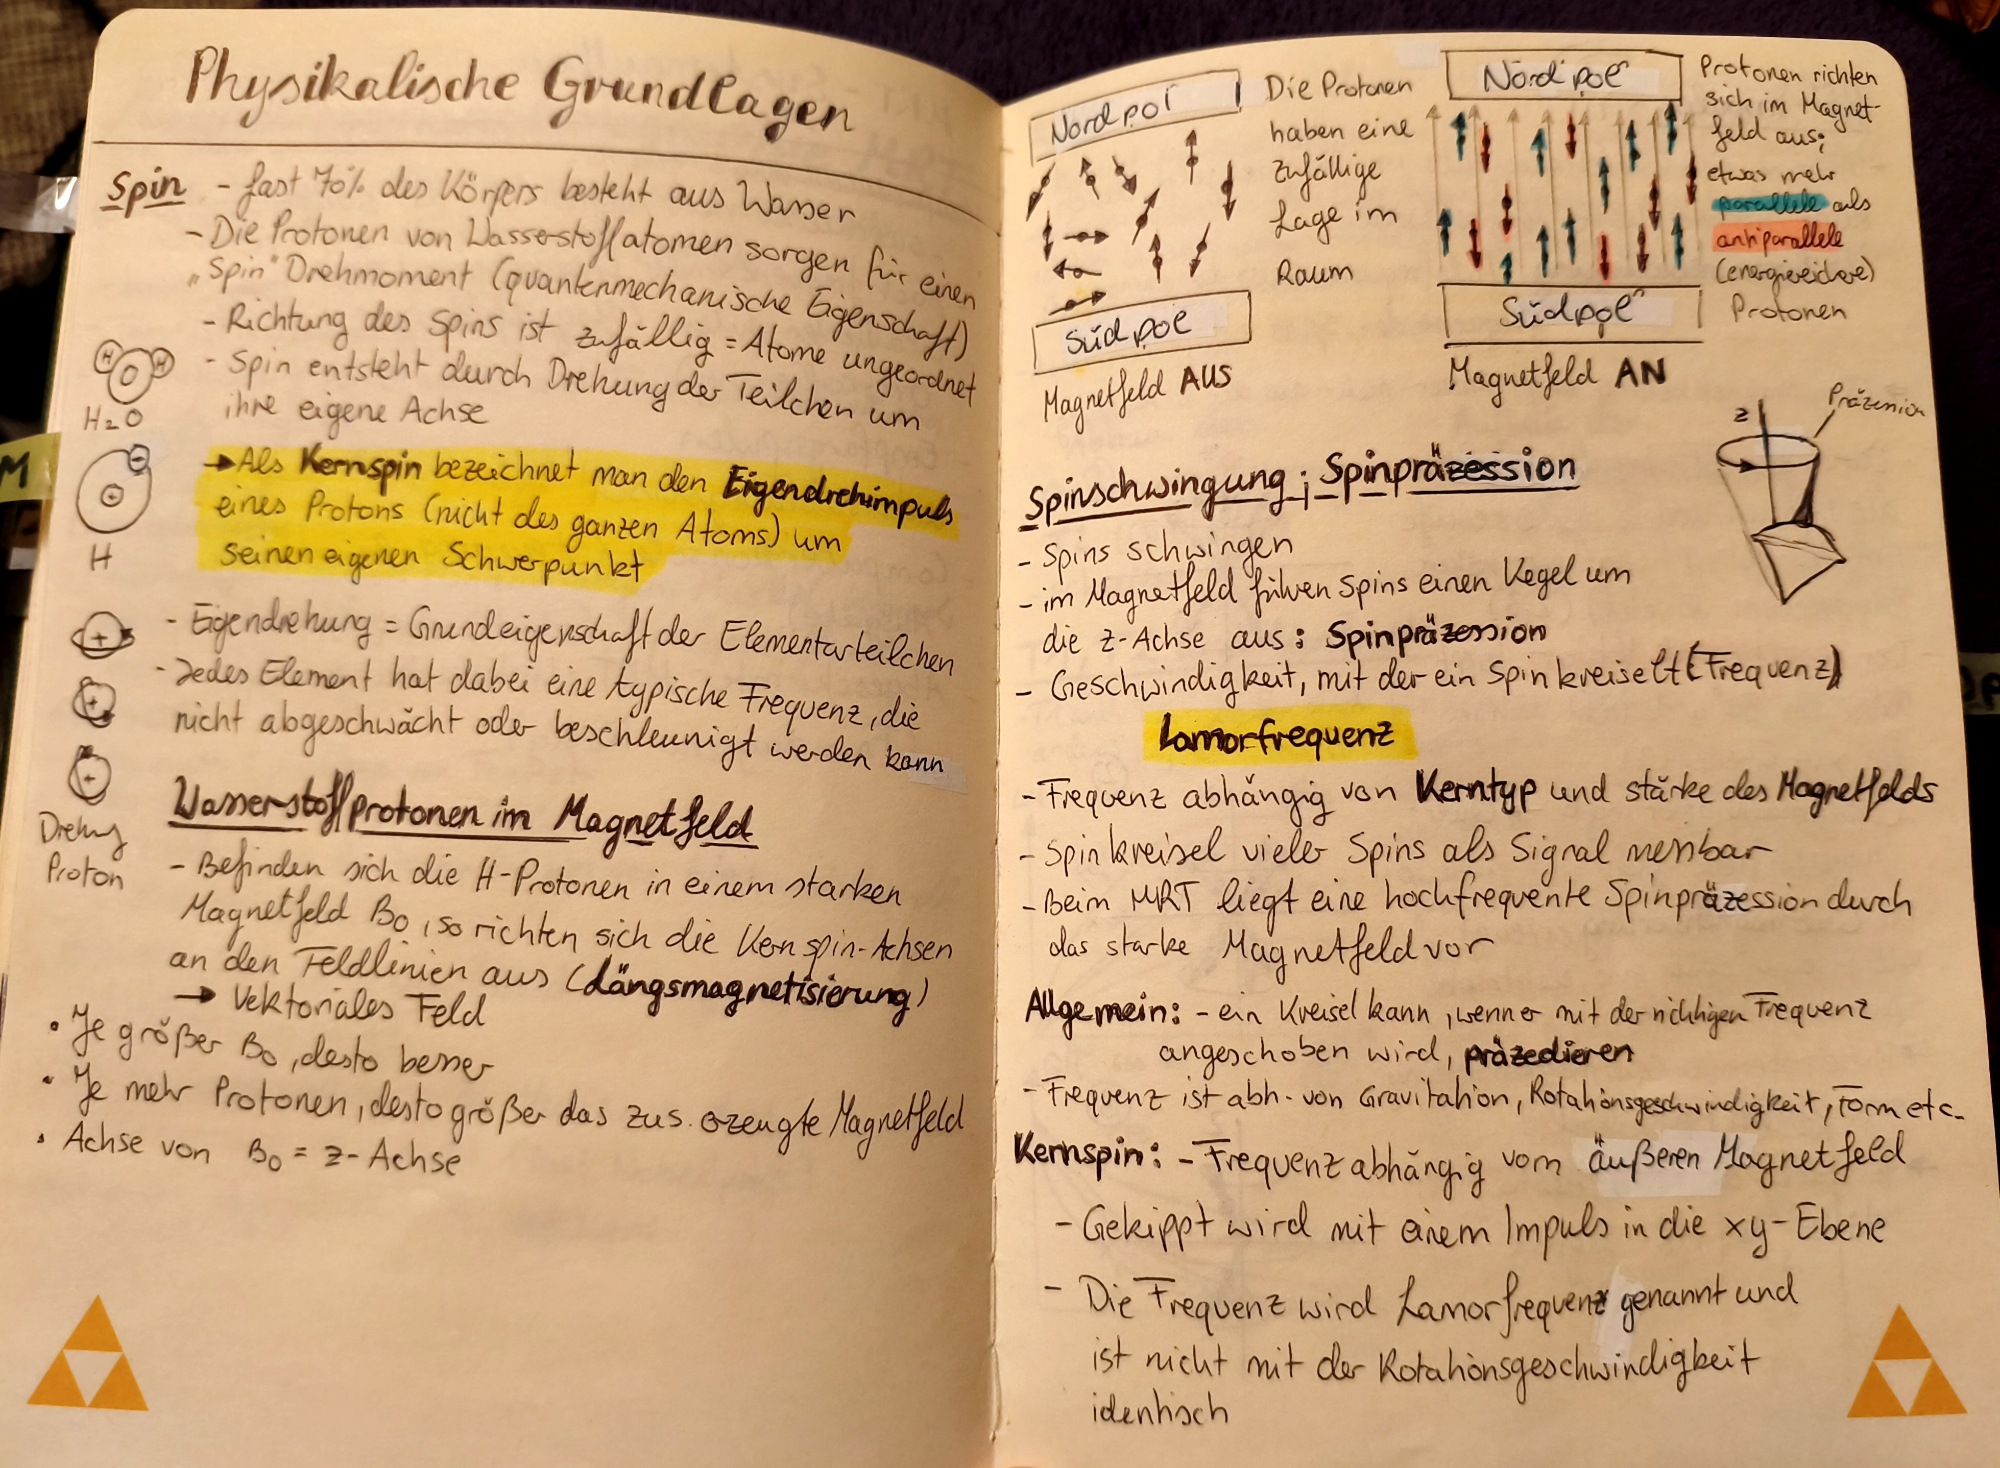 Physikalische Grundlagen
Spin - fast 70% des Körpers besteht aus Wasser
- Die Protonen von Wasserstoffatomen sorgen für einen
„Spin“ Drehmoment (quantenmechanische Eigenschaft)
- Richtung des Spins ist zufällig = Atome ungeordnet
- Spin entsteht durch Drehung der Teilchen um
ihre eigene Achse
H H
O
H₂O
→ Als Kernspin bezeichnet man den Eigendrehimpuls
eines Protons (nicht des ganzen Atoms) um
seinen eigenen Schwerpunkt
-
+
H
- Eigendrehung = Grundeigenschaft der Elementarteilchen
- Jedes Element hat dabei eine typische Frequenz, die
nicht abgeschwächt oder beschleunigt werden kann
+
+
+
Drehung
Proton
Wasserstoffprotonen im Magnetfeld
- Befinden sich die H-Protonen in einem starken
Magnetfeld B₀, so richten sich die Kernspin-Achsen
an den Feldlinien aus (Längsmagnetisierung)
→ Vektoriales Feld
• Je größer B₀, desto besser
• Je mehr Protonen, desto größer das zus. erzeugte Magnetfeld
• Achse von B₀ = z-Achse
Nordpol
Südpol
Magnetfeld AUS
Die Protonen
haben eine
zufällige
Lage im
Raum
Nordpol
Südpol
Magnetfeld AN
Protonen richten
sich im Magnet-
feld aus;
etwas mehr
parallele als
antiparallele
(energiereichere)
Protonen
z
Präzession
Spinschwingung; Spinpräzession
- Spins schwingen
- im Magnetfeld führen Spins einen Kegel um
die z-Achse aus: Spinpräzession
- Geschwindigkeit, mit der ein Spin kreiselt (Frequenz)
Lamorfrequenz
- Frequenz abhängig von Kerntyp und stärke des Magnetfelds
- Spinkreisel vieler Spins als Signal messbar
- Beim MRT liegt eine hochfrequente Spinpräzession durch
das starke Magnetfeld vor
Allgemein: - ein Kreisel kann, wenn er mit der richtigen Frequenz
angeschoben wird, präzedieren
- Frequenz ist abh. von Gravitation, Rotationsgeschwindigkeit, Form etc.
Kernspin: - Frequenz abhängig vom äußeren Magnetfeld
- Gekippt wird mit einem Impuls in die xy-Ebene
- Die Frequenz wird Lamorfrequenz genannt und
ist nicht mit der Rotationsgeschwindigkeit
identisch
M